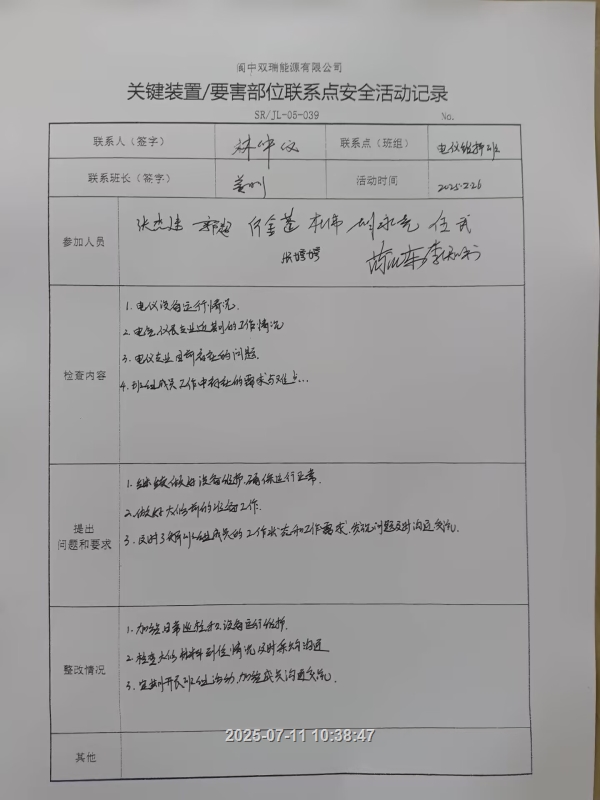 阆中双瑞能源有限公司
关键装置/要害部位联系点安全活动记录
SR/JL-05-039 No.
联系人（签字） 联系点（班组） 电仪维护班
联系班长（签字） 活动时间 2025.2.26
参加人员
检查内容
1.电仪设备运行情况.
2.电气仪表专业近期的工作情况
3.电仪专业目前存在的问题.
4.班组成员工作中存在的需求与难点...
提出
问题和要求
1.继续做好设备维护,确保运行正常.
2.做好大修前的准备工作.
3.及时了解班组成员的工作状态和工作需求,发现问题及时沟通交流.
整改情况
1.加强日常巡检和设备运行维护.
2.检查大修材料到位情况及时来沟通
3.定期开展班组活动,加强成员沟通交流.
其他
2025-07-11 10:38:47